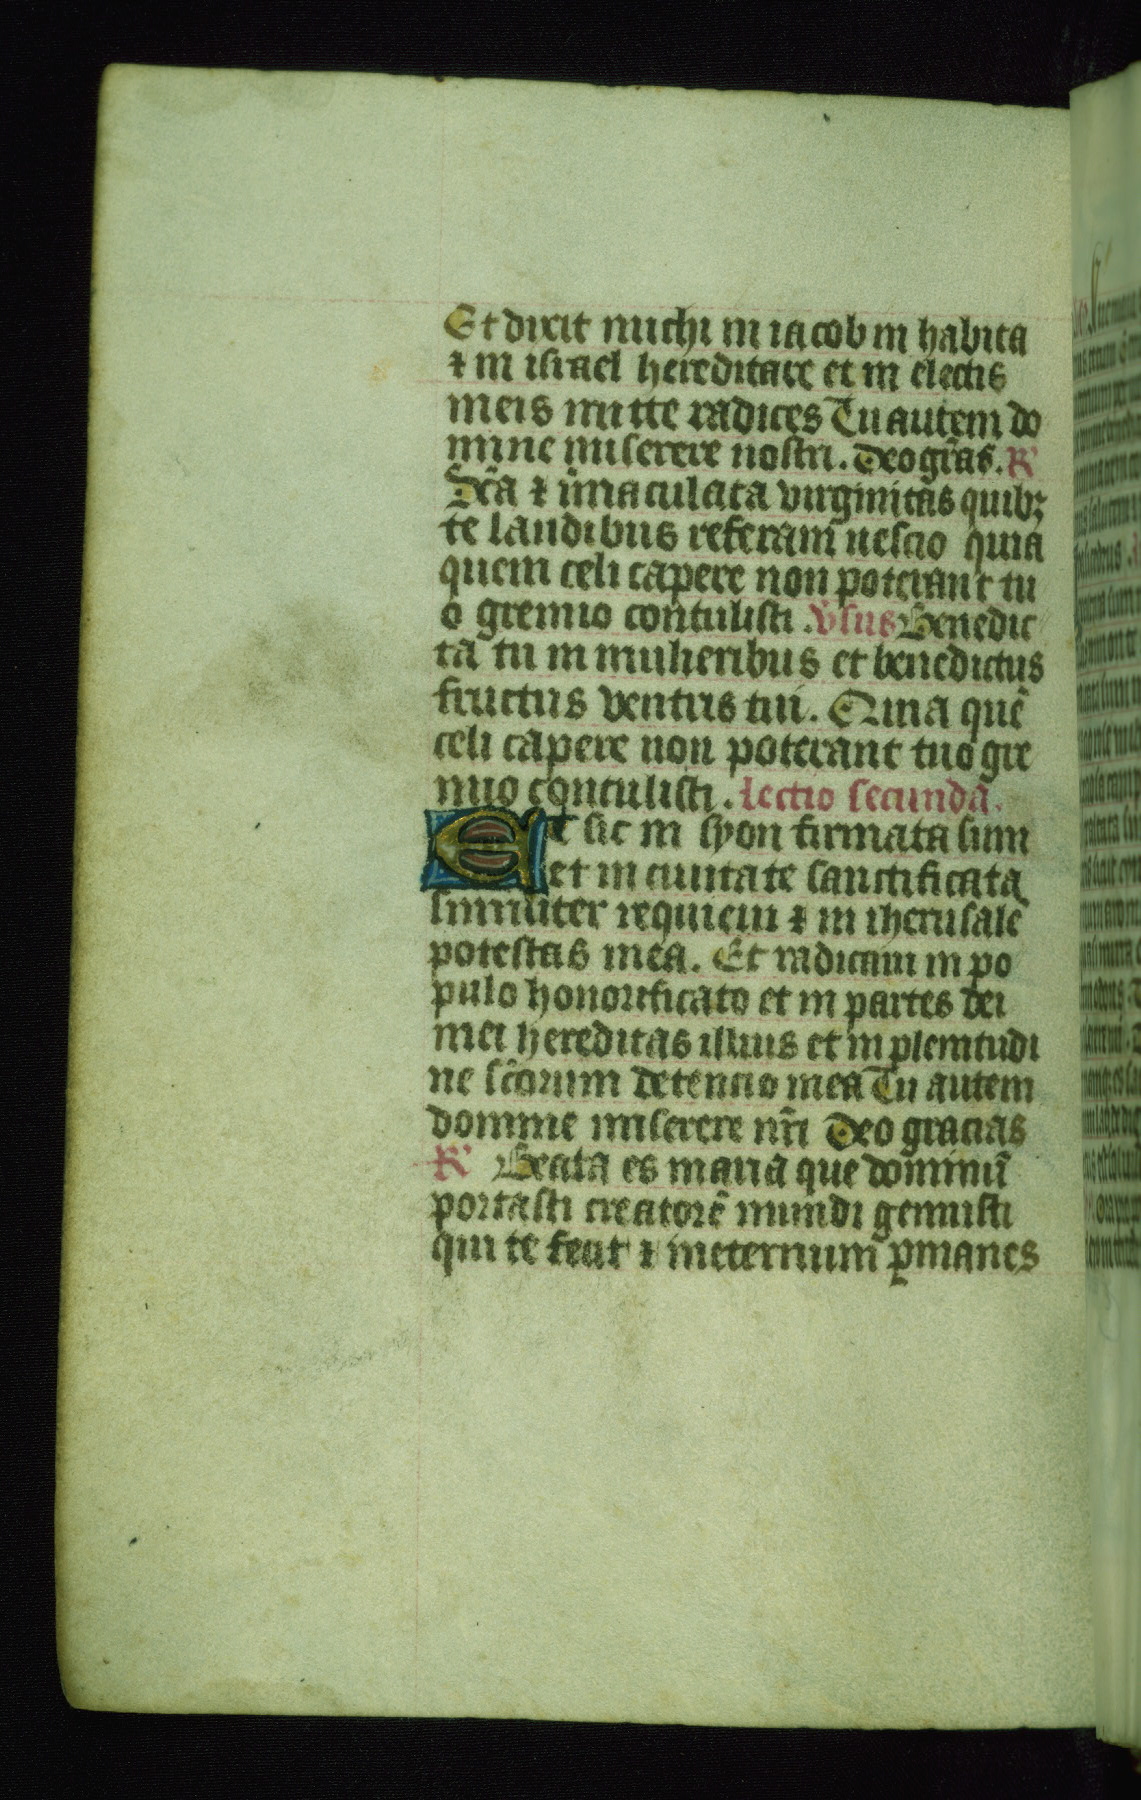 Et dixit michi in iacob in habita
⁊ in israel hereditare et in electis
meis mitte radices Tu autem do
mine miserere nostri. Deo gr̃as. R̕
Sc̃a ⁊ īmaculata virginitas quibꝫ
te laudibus referam nescio quia
quem celi capere non poterant tu
o gremio contulisti. v̕sus Benedic
ta tu in mulieribus et benedictus
fructus ventris tui. Quia quē
celi capere non poterant tuo gre
mio contulisti. lectio secunda.
Et sic in syon firmata sum
et in ciuitate sanctificata
similiter requieui ⁊ in iherusalē
potestas mea. Et radicaui in po
pulo honorificato et in partes dei
mei hereditas illius et in plenitudi
ne sc̃orum detencio mea Tu autem
domine miserere nr̃i Deo gracias
R̕ Beata es maria que dominū
portasti creatorē mundi genuisti
qui te fecit ⁊ ineternum ꝑmanes